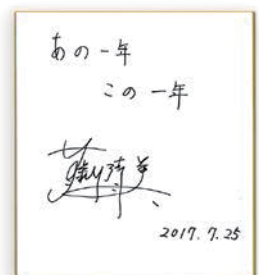 あの一年
この一年
2017.7.25